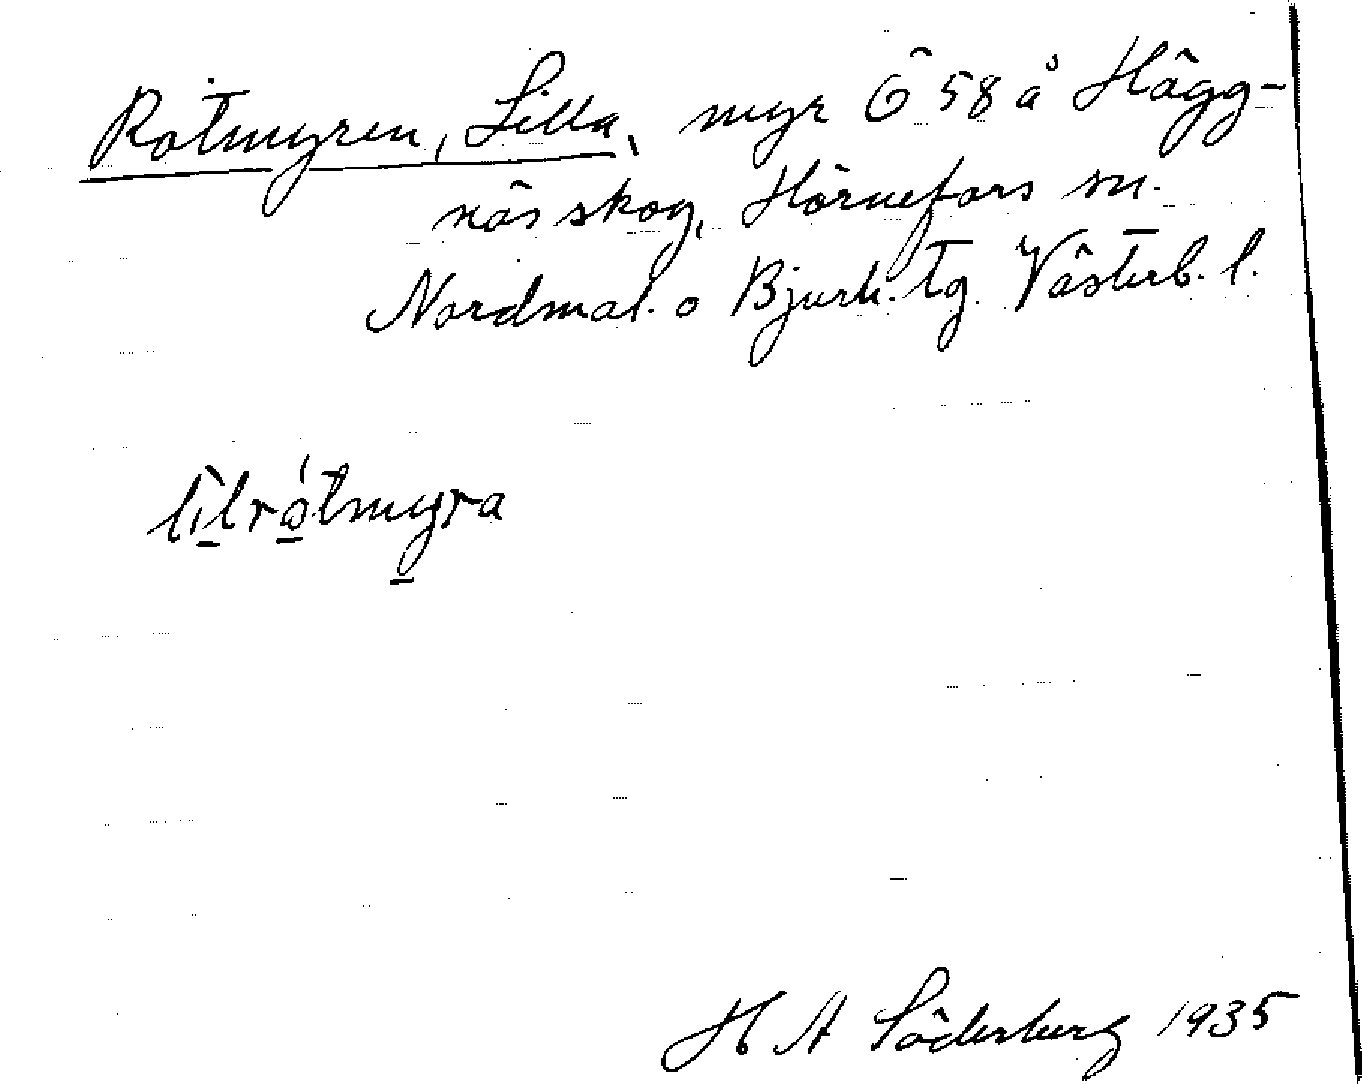 Rotmyren, Lilla, myr Ö 58 å Hägg-
näs skog, Hörnefors sn.
Nordmal. o Bjurh. tg. Västerb. l.
lìlrótmyra
H A Söderberg 1935